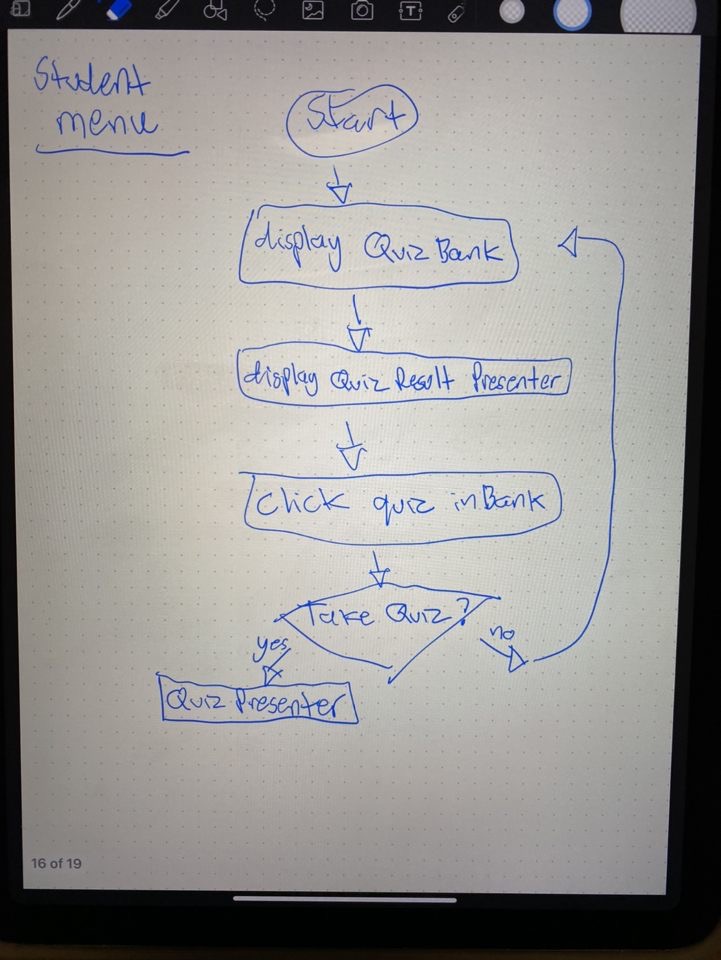 Student
menu
Start
display Quiz Bank
display Quiz Result Presenter
click quiz in Bank
Take Quiz?
yes
no
Quiz Presenter
16 of 19